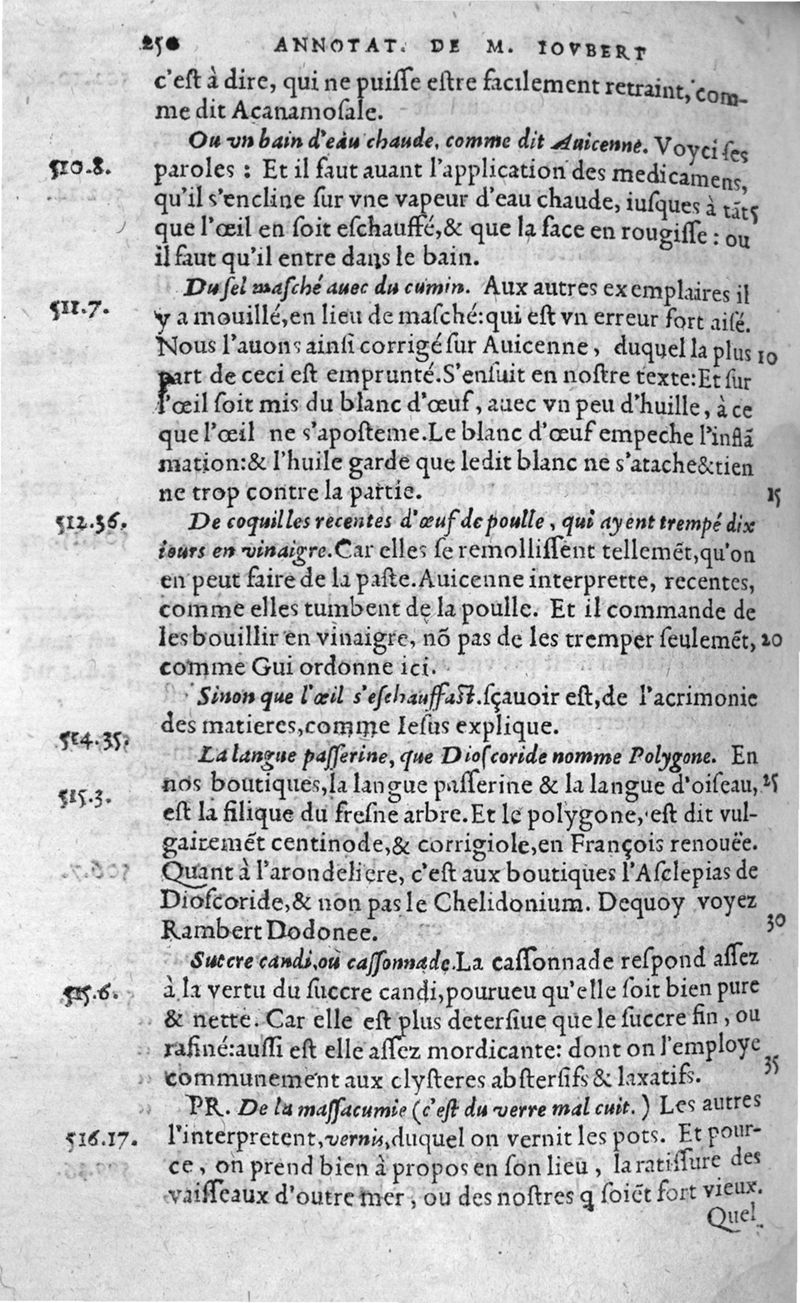 250 ANNOTAT. DE M. IOVBERT
c'eſt à dire, qui ne puiſſe eſtre facilement retraint, com-
me dit Acanamoſale.
Ou vn bain d'eau chaude, comme dit Auicenne. Voyci ſes
510.8. paroles : Et il faut auant l'application des medicamens,
qu'il s'encline ſur vne vapeur d'eau chaude, iuſques à tãt 5
que l'œil en ſoit eſchauffé,& que la face en rougiſſe : ou
il faut qu'il entre dans le bain.
Du ſel maſché auec du cumin. Aux autres exemplaires il
511.7. y a mouillé,en lieu de maſché:qui eſt vn erreur fort aiſé.
Nous l'auons ainſi corrigé ſur Auicenne, duquel la plus 10
part de ceci eſt emprunté.S'enſuit en noſtre texte:Et ſur
l'œil ſoit mis du blanc d'œuf, auec vn peu d'huille, à ce
que l'œil ne s'apoſteme.Le blanc d'œuf empeche l'inflã
mation:& l'huile garde que ledit blanc ne s'atache&tien
ne trop contre la partie. 15
512.36. De coquilles recentes d'œuf de poulle, qui ayent trempé dix
iours en vinaigre.Car elles ſe remolliſſent tellemẽt,qu'on
en peut faire de la paſte.Auicenne interprette, recentes,
comme elles tumbent de la poulle. Et il commande de
les bouillir en vinaigre, nõ pas de les tremper ſeulemẽt, 20
comme Gui ordonne ici.
Sinon que l'œil s'eſchauffaſt.ſçauoir eſt,de l'acrimonie
des matieres,comme Ieſus explique.
514.35. La langue paſſerine, que Dioſcoride nomme Polygone. En
515.3. nos boutiques,la langue paſſerine & la langue d'oiſeau, 25
eſt la ſilique du freſne arbre.Et le polygone, eſt dit vul-
gairemẽt centinode,& corrigiole,en François renouëe.
Quant à l'arondeliere, c'eſt aux boutiques l'Aſclepias de
Dioſcoride,& non pas le Chelidonium. Dequoy voyez
Rambert Dodonee. 30
Succre candi,ou caſſonnade.La caſſonnade reſpond aſſez
515.6. à la vertu du ſuccre candi,pourueu qu'elle ſoit bien pure
& nette. Car elle eſt plus deterſiue que le ſuccre fin, ou
rafiné:auſſi eſt elle aſſez mordicante: dont on l'employe
communement aux clyſteres abſterſifs & laxatifs. 35
PR. De la maſſacumie (c'eſt du verre mal cuit.) Les autres
516.17. l'interpretent,vernis,duquel on vernit les pots. Et pour-
ce, on prend bien à propos en ſon lieu, la ratiſſure des
vaiſſeaux d'outre mer, ou des noſtres q ſoiẽt fort vieux.
Quel